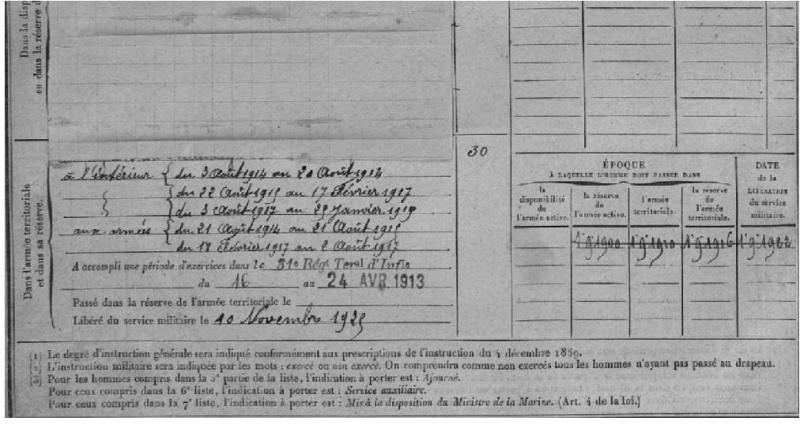 Dans la disp
ou dans la réserve
Dans l'armée territoriale
et dans sa réserve.
à l'intérieur { du 3 Août 1914 au 20 Août 1914
} { du 22 Août 1915 au 17 Février 1917
{ du 3 Août 1917 au 29 Janvier 1919
aux armées { du 21 Août 1914 au 21 Août 1915
du 18 Février 1917 au 2 Août 1917
A accompli une période d'exercices dans le 31e Régt Toral d'Infie
du 16 au 24 AVR 1913
Passé dans la réserve de l'armée territoriale le
Libéré du service militaire le 10 Novembre
30
ÉPOQUE
À LAQUELLE L'HOMME DOIT PASSER DANS
la disponibilité de l'armée active.
la réserve de l'armée active.
l'armée territoriale.
la réserve de l'armée territoriale.
DATE
de la
LIBÉRATION
du service
militaire.
1 9 1900 1 9 1910 1 9 1916 1 9 1922
(1) Le degré d'instruction générale sera indiqué conformément aux prescriptions de l'instruction du 4 décembre 1889.
(2) L'instruction militaire sera indiquée par les mots : exercé ou non exercé. On comprendra comme non exercés tous les hommes n'ayant pas passé au drapeau.
(3) Pour les hommes compris dans la 5e partie de la liste, l'indication à porter est : Ajourné.
Pour ceux compris dans la 6e liste, l'indication à porter est : Service auxiliaire.
Pour ceux compris dans la 7e liste, l'indication à porter est : Mis à la disposition du Ministre de la Marine. (Art. 4 de la loi.)